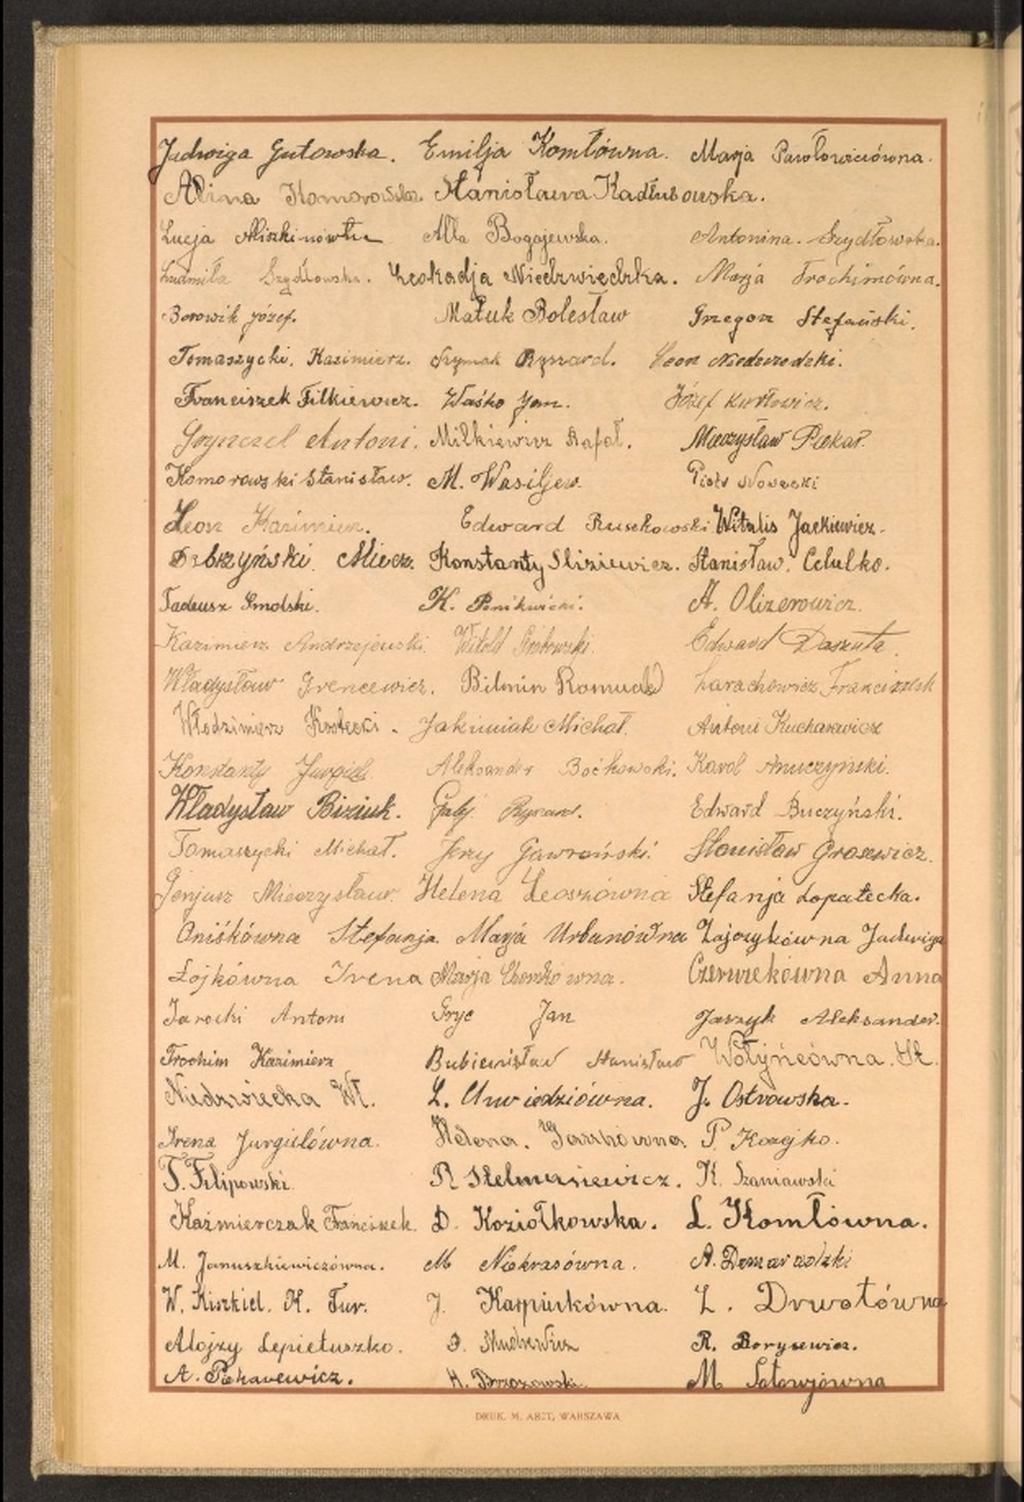 Jadwiga Gutowska. Emilja Komłówna. Marja Pawłowiczówna.
Alina Komorowska. Stanisława Kadłubowska.
Łucja Miszkinówna Alla Bogajewska. Antonina. Szydłowska.
Ludmiła Szydłowska. Leokadja Niedzwiedzka. Marja Trochimówna.
Borowik józef. Matuk Bolesław Grzegorz Stefański.
Tomaszycki, Kazimierz. Szymak Ryszard. Leon
Franciszek Filkiewicz. Waśko Jan. Józef Kurłowicz.
Antoni. Milkiewicz Rafał. Mieczysław Piekar.
Komorowski Stanisław. M. Wasiljew. Piotr Nowacki
Leon Kazimierz. Edward Ruszkowski Witalis Jackiewicz.
Dobrzyński. Miecz. Konstanty Sliziewicz. Stanisław. Celulko.
Tadeusz Smolski. K. Ponikwicki. A. Olizerowicz.
Kazimierz Andrzejewski. Witold Edward Daszuta.
Władysław Irencewicz. Bilmin Romuald Larachowicz Franciszek
Włodzimierz Jakimiak Michał. Antoni Kucharewicz
Konstanty Jurgiel Aleksander Boćkowski. Karol Anuczyński.
Władysław Biziuk. Gały. Ryszard. Edward Buczyński.
Tomaszycki Michał. Jerzy Gawroński. Stanisław Grosewicz.
Jenjusz Mieczysław. Helena Leoszówna Stefanja Łopatecka.
Oniśkówna Stefanja. Marja Urbanówna Zajczykówna Jadwiga
Łojkówna Irena Marja Chomkówna. Czerwiekówna Anna
Jarocki Antoni Gryc Jan Jarzyk Aleksander.
Trochim Kazimierz Stanisław Wołyńcówna. St.
Niedzwiecka Wł. L. Unwiedziówna. J. Ostrowska.
Irena Jurgielówna. Helena. P. Kozejko.
T. Filipowski. R Stelmasiewicz. K. Szaniawski
Kaźmierczak Franciszek. D. Koziołkowska. L. Komłówna.
M. Januszkiewiczówna. M Niekrasówna. A. Domaradzki
W. Kiszkiel. K. Tur. J. Karpiukówna. L. Drwotówna
Alojzy Lepietuszko. R. Borysewicz.
A. H. Brzozowski. M
DRUK. M. ARCT, WARSZAWA